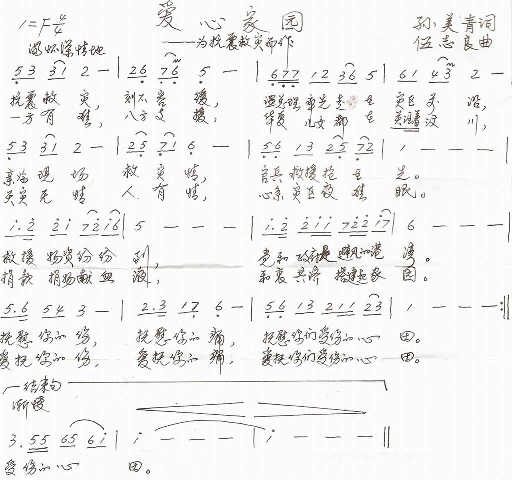 爱心家园
1=F 4/4
孙美青词
满怀深情地
——为抗震救灾而作
伍志良曲
5 3 3 1 2 — | 2 6 7 6 5 — | 6 7 7 1 2 3 6 5 | 6 1 4 3 2 — |
抗震救灾, 刻不容缓, 温总理率先走在灾区前沿,
一方有难, 八方支援, 华夏儿女都在 汶川,
5 3 3 1 2 — | 2 5 7 1 6 — | 5 6 1 3 2 5 7 2 | 1 — — — |
亲临现场 救灾情, 官兵救援抢在先。
灾无情 人有情, 心系灾区夜难眠。
i . 2 2 i 7 2 i 6 | 5 — — — | i . 2 2 i i 7 2 2 i 7 | 6 — — — |
救援物资纷纷到, 党和政府是避风的港湾。
捐款捐物献血液, 和衷共济搭建起家园。
5 . 6 5 4 3 — | 2 . 3 1 7 6 — | 5 6 1 3 2 1 1 2 3 | 1 — — — :||
抚慰你的伤, 抚慰你的痛, 抚慰你们受伤的心田。
爱抚你的伤, 爱抚你的痛, 爱抚你们受伤的心田。
结束句
渐慢
3 . 5 5 6 5 6 i | i — — — | i — — — ||
受伤的心田。